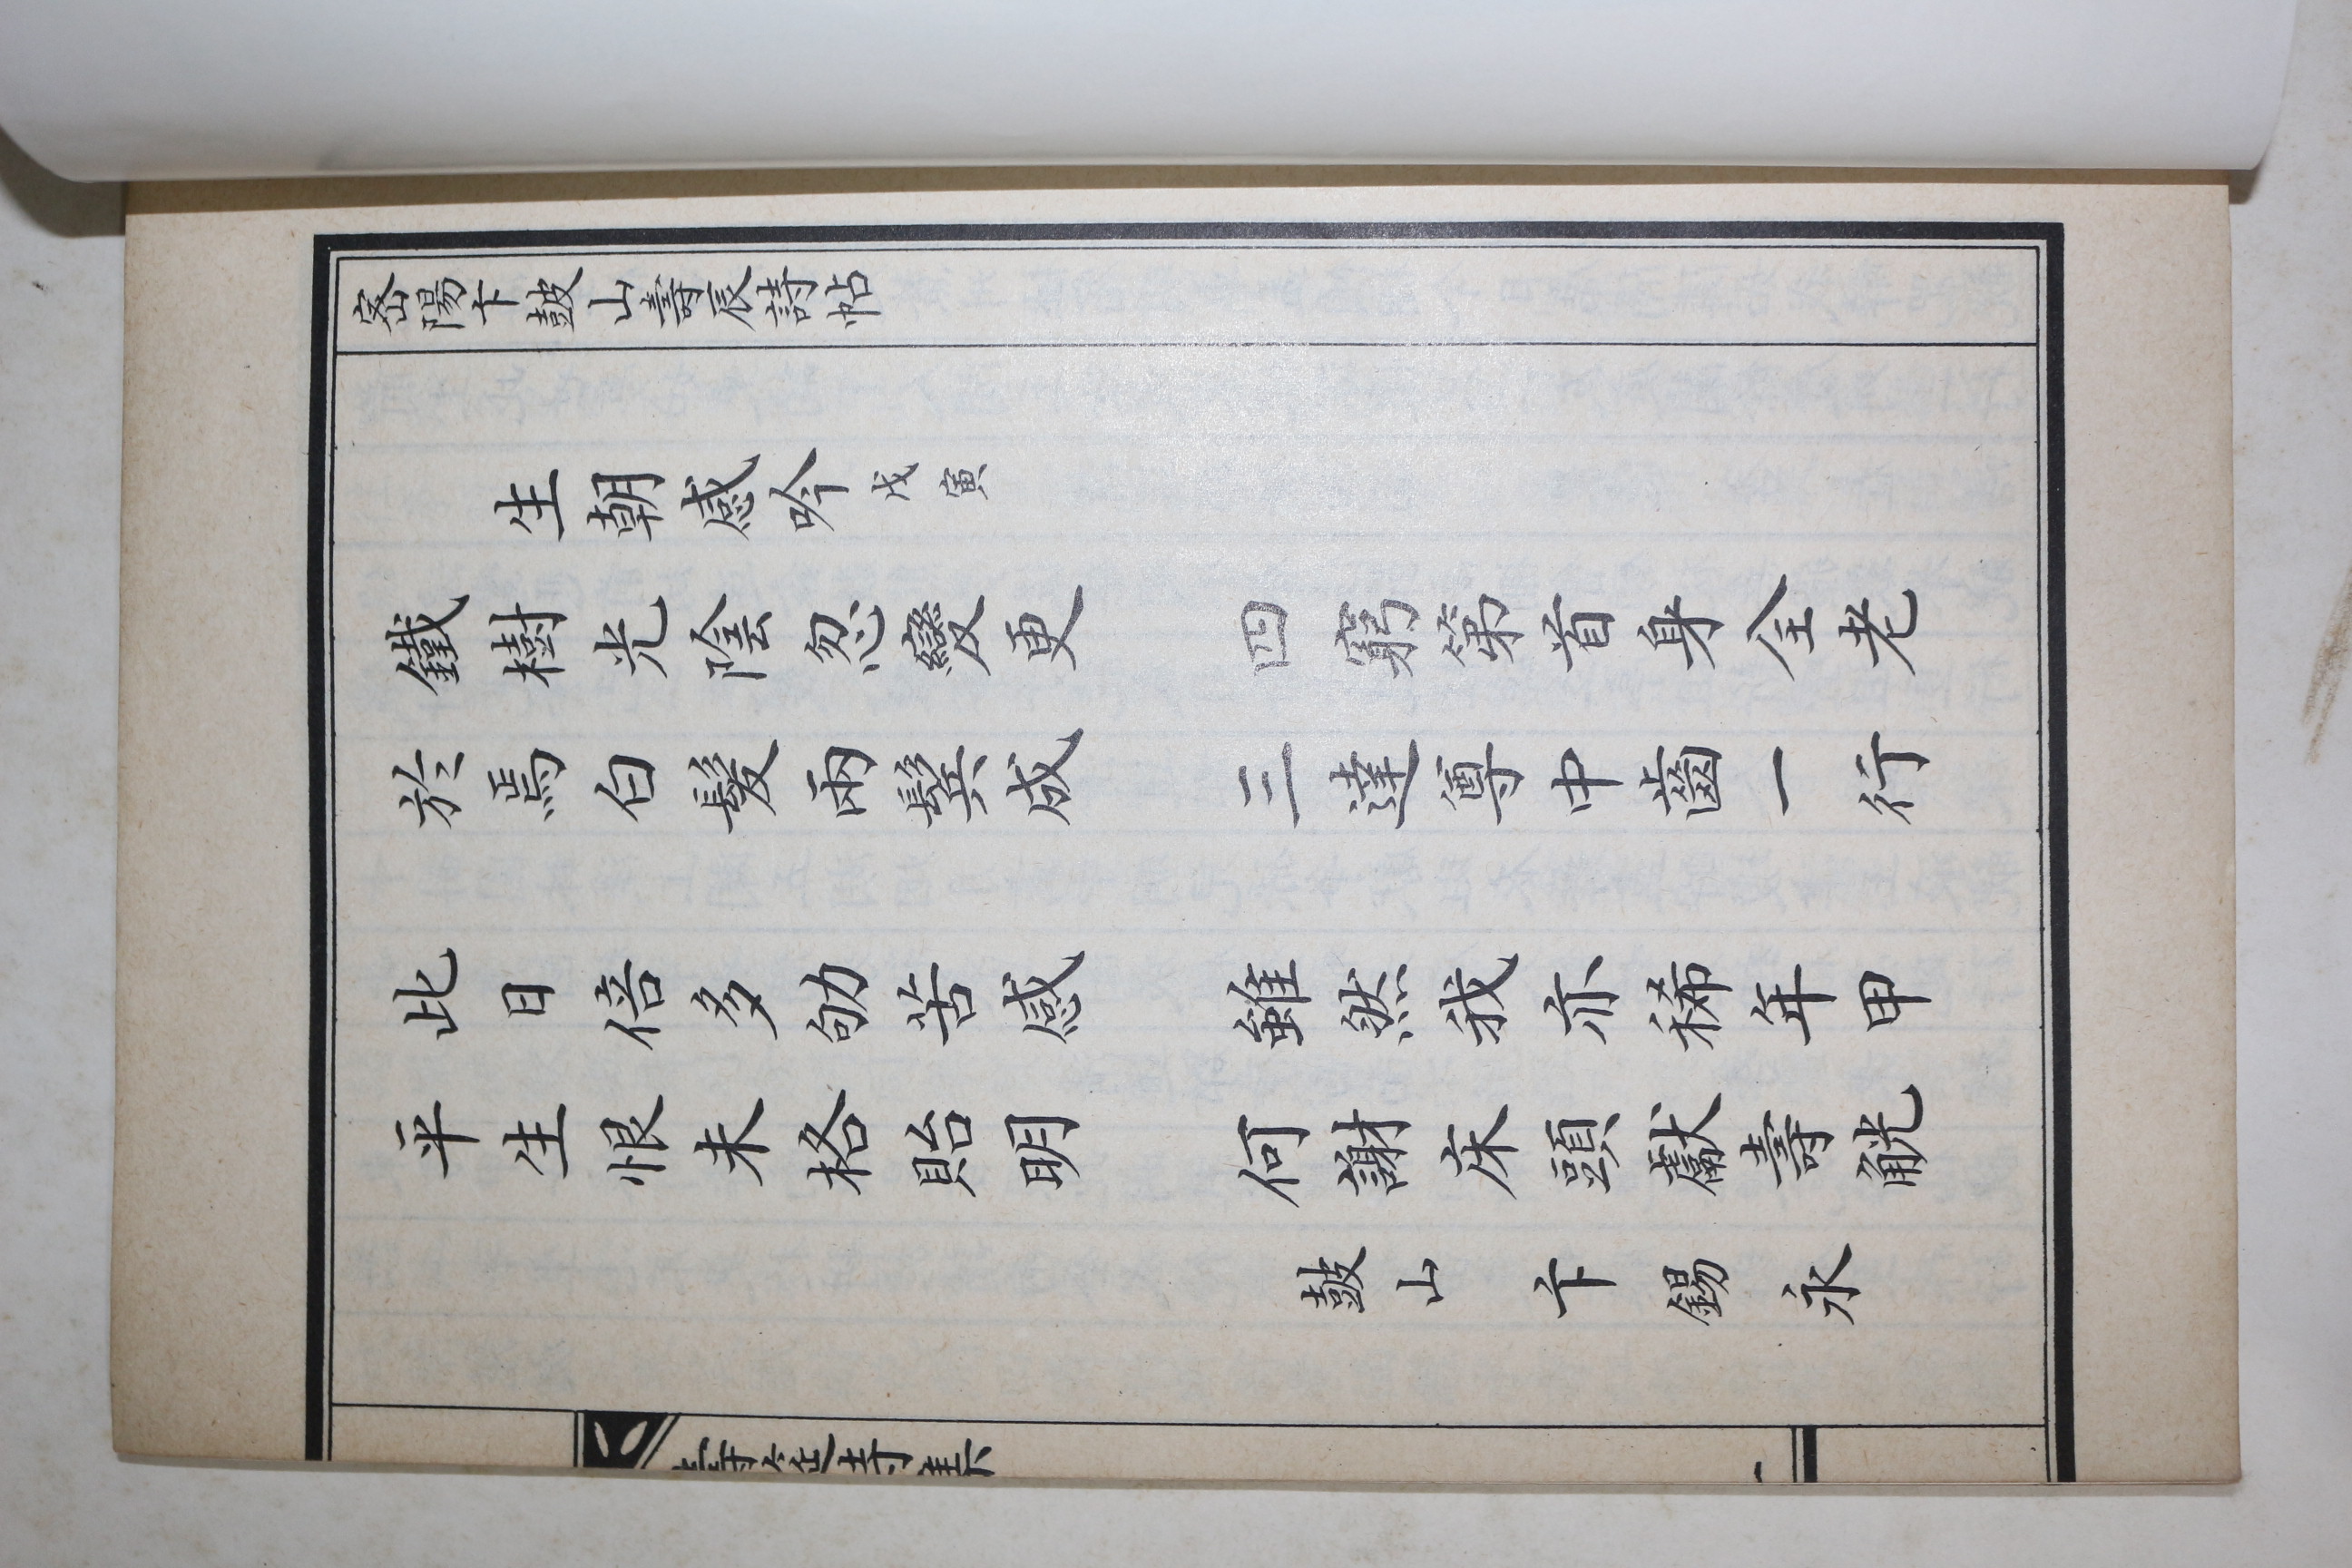 密陽卞皷山壽辰詩帖
生朝感吟 戊寅
鐵樹光陰忽變更 四窮第首身全老
於焉白髮兩鬂成 三達尊中齒一行
此日倍多劬苦感 雖然我亦稀年甲
平生恨未格貽明 何謝床頭獻壽觥
皷山 卞錫永